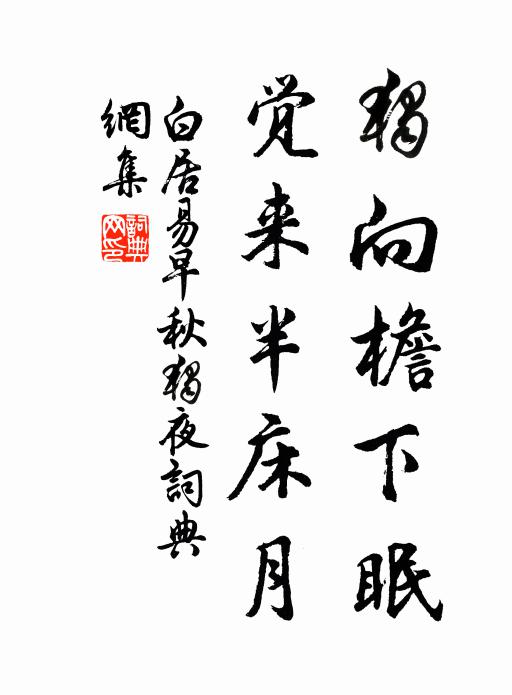 獨向檐下眠
覚来半床月
白居易早秋獨夜詞典
網集
詞典
网印